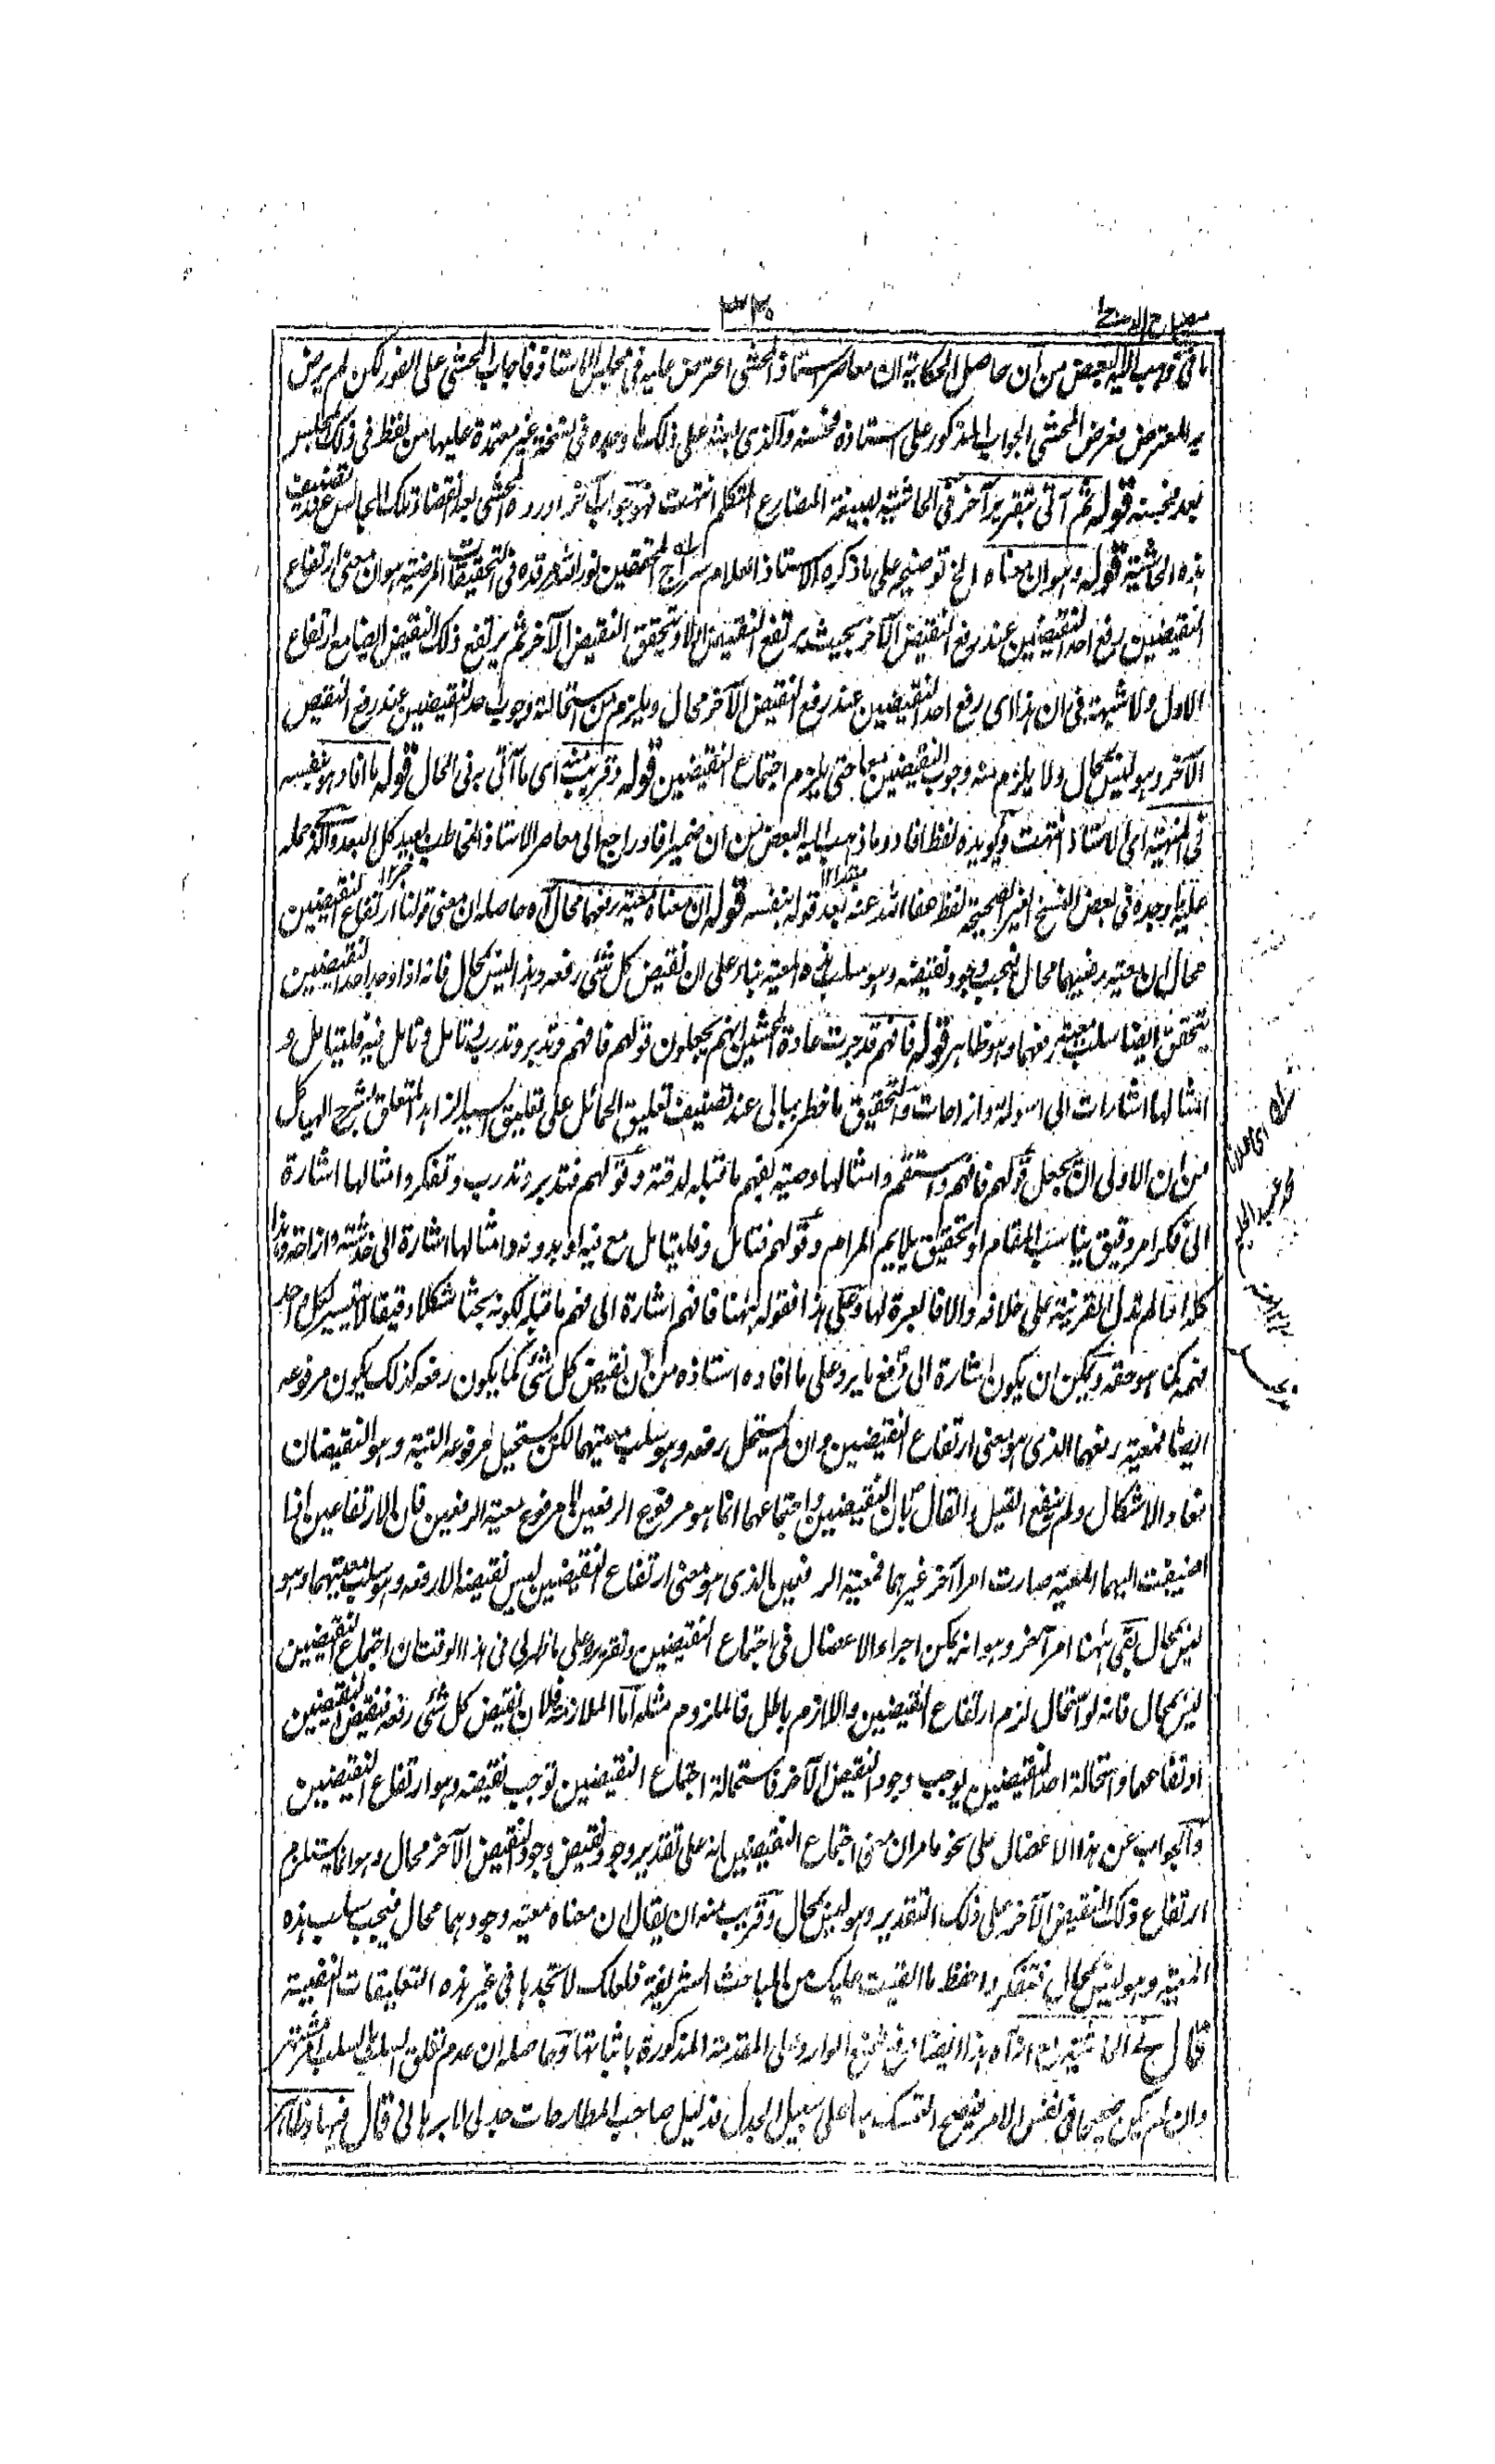 مصباح الدجى
٣٣٠
ما في ذهب اليه البعض من ان حاصل الحكاية ان معاصر استاذ المحشى اعترض عليه في مجلس الاستاذ فاجاب المحشى على الفور لكن لم يرض
به المعترض فعرض المحشى الجواب المذكور على استاذه فحسنه والذى بعثه على ذلك ما وجده في نسخة غير معتمدة عليها من لفظ في ذلك المجلس
بعد فحسنه قوله ثم آتى بتقرير آخر في الحاشية بصيغة المضارع المتكلم انتهت فهو جواب آخر اورده المحشى بعد انقضاء تلك المجالس عند تصنيف
هذه الحاشية قوله وهو ان معناه الخ توضيحه على ما ذكره الاستاذ العلام سراج المحققين نور الله مرقده في التحقيقات المرضية هو ان معنى ارتفاع
النقيضين رفع احد النقيضين عند رفع النقيض الآخر بحيث يرتفع النقيض الاول ويتحقق النقيض الآخر ثم يرتفع ذلك النقيض ايضا مع ارتفاع
الاول ولا شبهة في ان هذا اى رفع احد النقيضين عند رفع النقيض الآخر محال ويلزم من استحالته وجوب احد النقيضين عند رفع النقيض
الآخر وهو ليس بمحال ولا يلزم منه وجوب النقيضين معا حتى يلزم اجتماع النقيضين قوله وقريب منه اى ما آتى به في الحال قوله ما افاد هو بنفسه
في المنهية اى الاستاذ انتهت ويؤيده لفظ افاد وما ذهب اليه البعض من ان ضمير افاد راجع الى معاصر الاستاذ المخاطب بعيد كل البعد والذى حمله
عليه ما وجده في بعض النسخ الغير الصحيحة لفظ عفا الله عنه بعد قوله بنفسه قوله ان معناه معية رفعهما محال اه حاصله ان معنى قولنا ارتفاع النقيضين
محال ان معية رفعيهما محال فيجب وجود نقيضه وهو سلب هذه المعية بناء على ان نقيض كل شئ رفعه وهذا ليس بمحال فانه اذا وجد احد النقيضين
يتحقق ايضا سلب معية رفعهما وهو ظاهر قوله فافهم قد جرت عادة المحشين انهم يجعلون قولهم فافهم وتدبر وتدرب وتامل وتامل فيه فليتامل و
امثالها اشارات الى اسولة وازاحات والتحقيق ما خطر ببالى عند تصنيف تعليق الحمائل على تعليق السيد الزاهد المتعلق بشرح الهياكل
من ان الاولى ان يجعل قولهم فافهم واستقم وامثالها وصية بفهم ما قبله لدقته وقولهم فتدبر وتدرب وتفكر وامثالها اشارة
الى فكر امر دقيق يناسب المقام او تحقيق يلايم المرام وقولهم فتامل وفليتامل مع فيه او بدونه وامثالها اشارة الى خدشة وازاحة وهذا
كله اذا لم تدل القرينة على خلافه والا فالعبرة لها وعلى هذا فقوله ههنا فافهم اشارة الى فهم ما قبله لكونه بحثا مشكلا دقيقا لا يتيسر لكل احد
فهمه كما هو حقه ويمكن ان يكون اشارة الى دفع ما يرد على ما افاده استاذه من ان نقيض كل شئ كما يكون رفعه كذلك يكون مرفوعه
ايضا فمعية رفعهما الذى هو معنى ارتفاع النقيضين وان لم يستحل رفعه وهو سلب معيتهما لكن يستحيل مرفوعه البتة وهو النقيضان
فعاد الاشكال ولم ينفع القيل والقال بان النقيضين واجتماعهما انما هو مرفوع الرفعين لا مرفوع معية الرفعين فان الارتفاعين اذا
اضيفت اليهما المعية صارت امرا آخر غيرهما فمعية الرفعين الذى هو معنى ارتفاع النقيضين ليس نقيضه الا رفعه وهو سلب معيتهما وهو
ليس بمحال بقى ههنا امر آخر وهو انه يمكن اجراء الاعضال في اجتماع النقيضين وتقريره على ما ظهر لى في هذا الوقت ان اجتماع النقيضين
ليس بمحال فانه لو استحال لزم ارتفاع النقيضين واللازم باطل فالملزوم مثله اما الملازمة فلان نقيض كل شئ رفعه فنقيض النقيضين
ارتفاعهما واستحالة احد النقيضين يوجب وجود النقيض الآخر فاستحالة اجتماع النقيضين توجب نقيضه وهو ارتفاع النقيضين
والجواب عن هذا الاعضال على نحو ما مر ان معنى اجتماع النقيضين انه على تقدير وجود نقيض وجود النقيض الآخر محال وهو انما يستلزم
ارتفاع ذلك النقيض الآخر على ذلك التقدير وهو ليس بمحال وقريب منه ان يقال ان معناه معية وجودهما محال فيجب سلب هذه
المعية وهو ليس بمحال فتفكر واحفظ ما القيت عليك من المباحث الشريفة فلعلك لا تجدها في غير هذه التعليقات النفيسة
قال في الحاشية اه هذا ايضا دفع المنع الوارد على المقدمة المذكورة باثباتها وحاصله ان عدم تعلق السلب بالسلب امر مشتهر
وان لم يكن صحيحا في نفس الامر فيصح التمسك بها على سبيل الجدل فدليل صاحب المطارحات جدلى لا برهانى قال فيها وظاهر